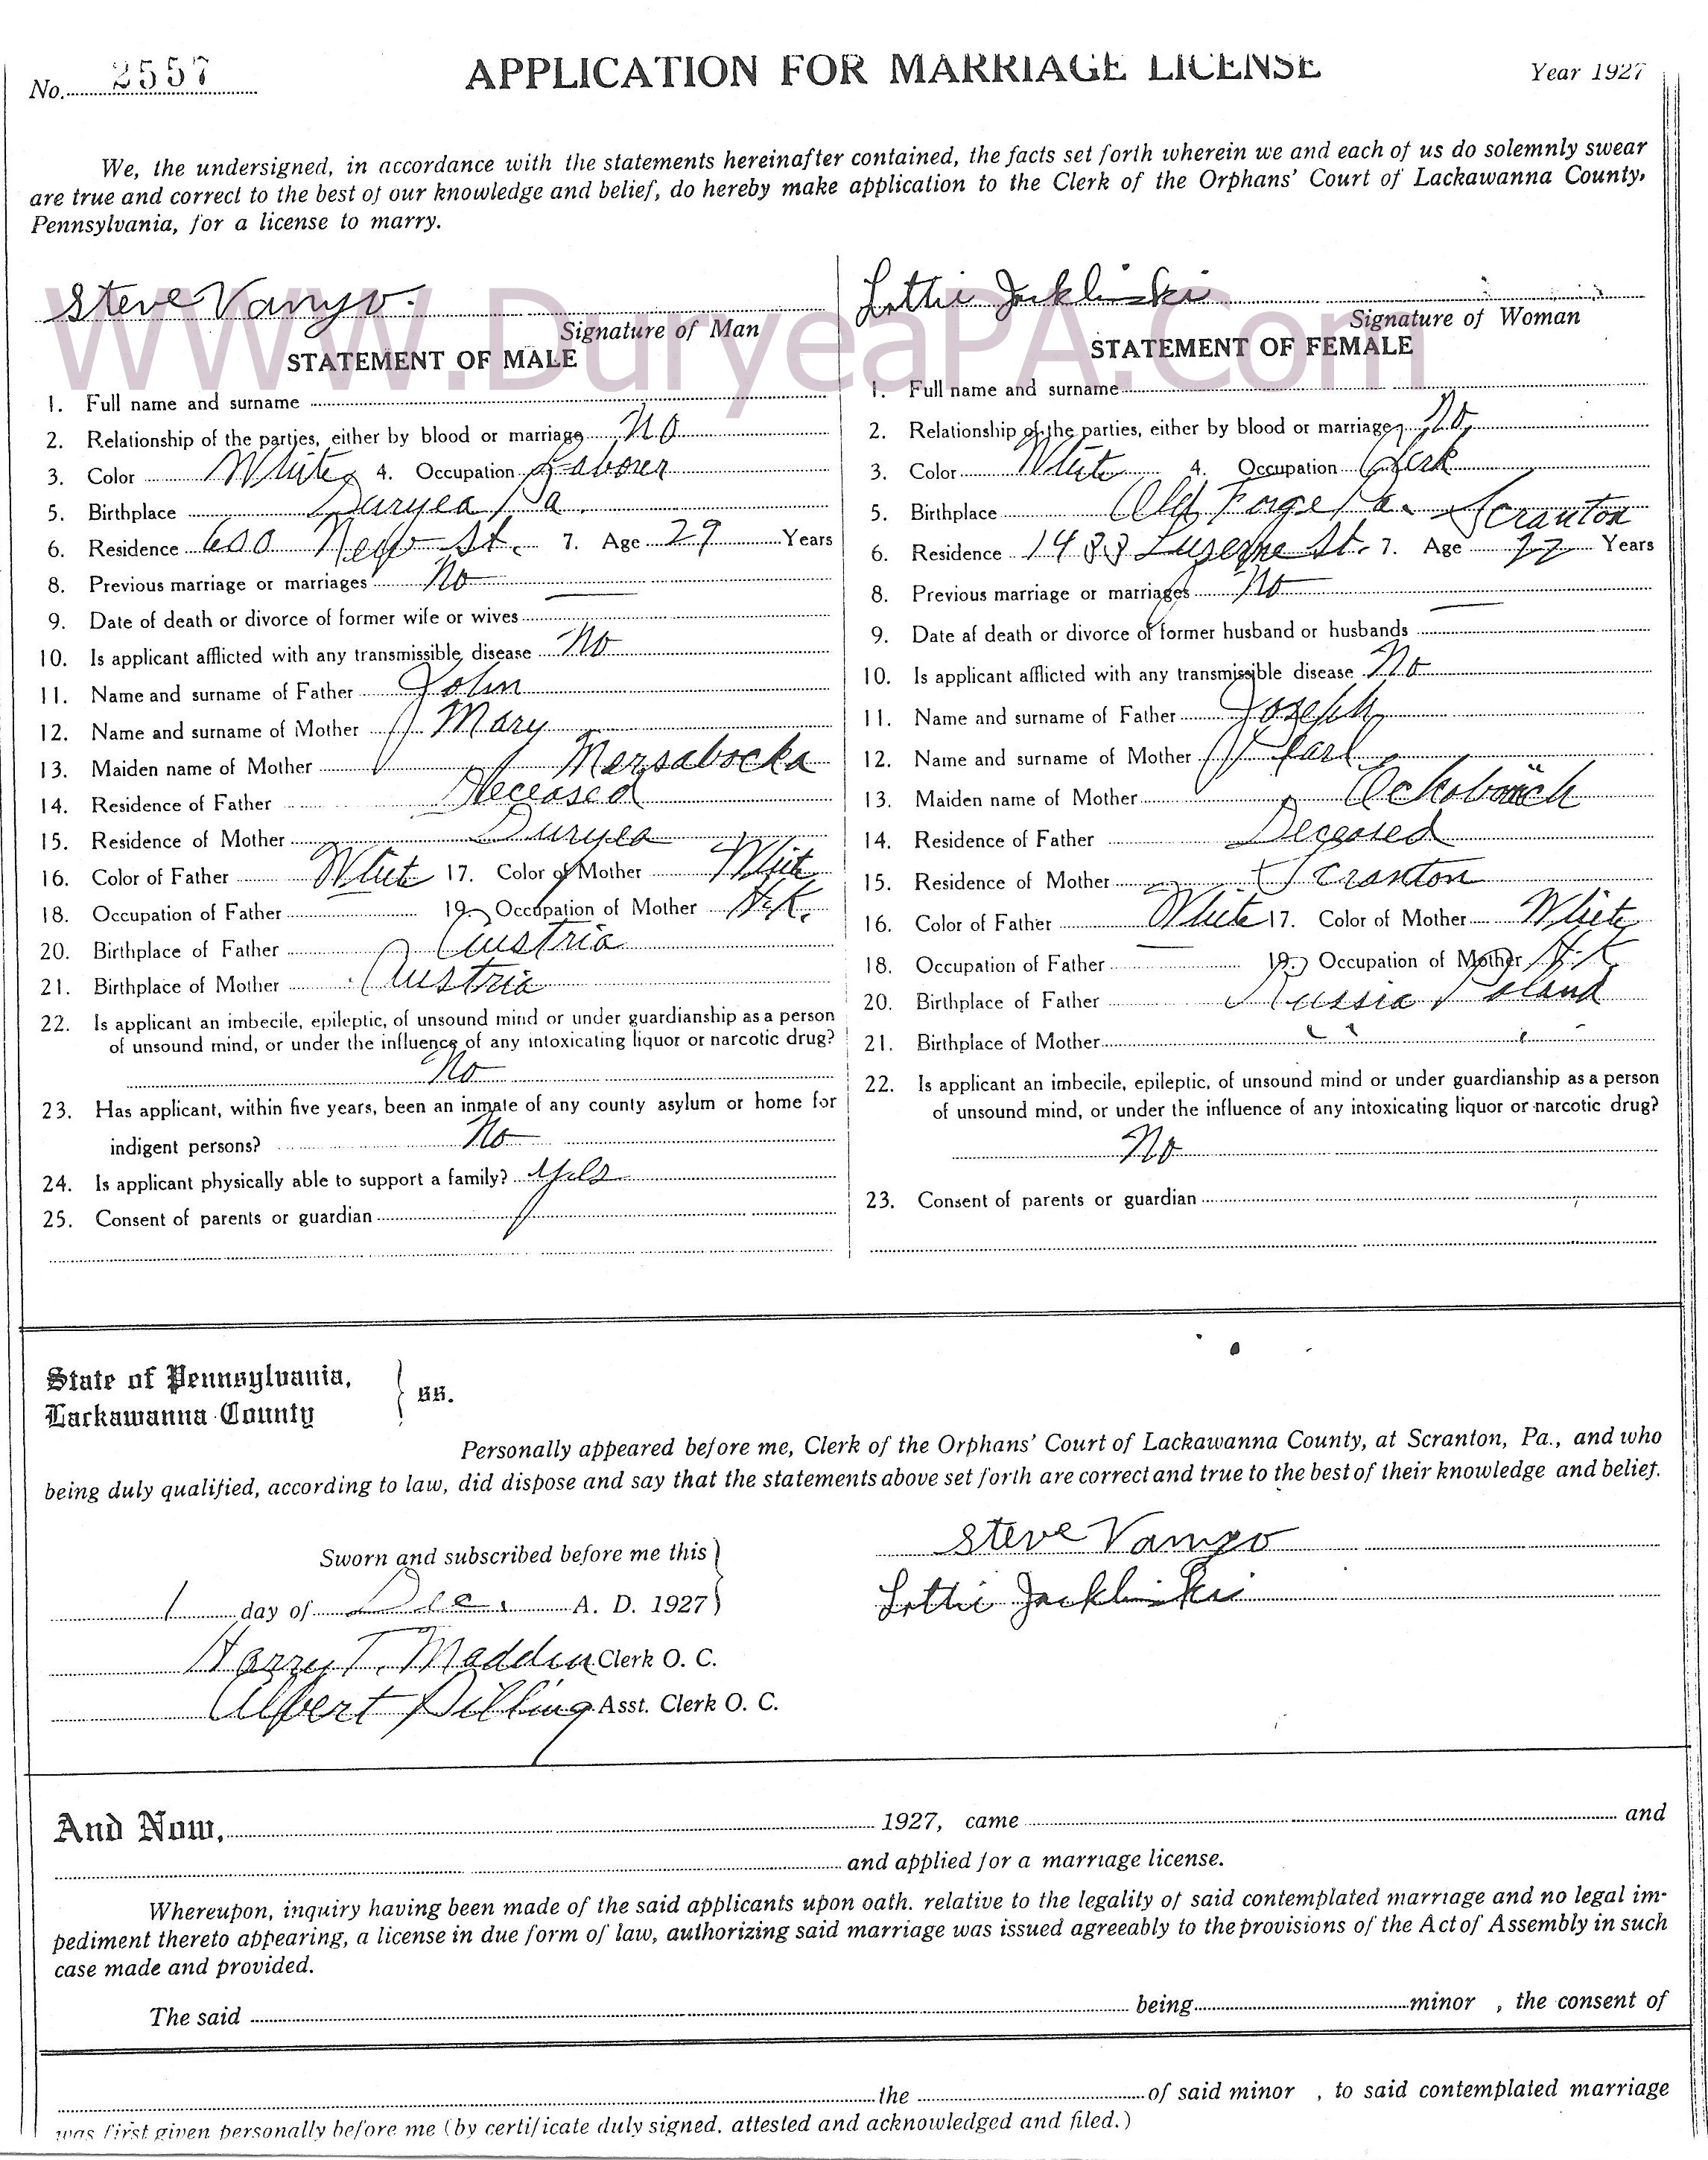 No. 2557
APPLICATION FOR MARRIAGE LICENSE
Year 1927
We, the undersigned, in accordance with the statements hereinafter contained, the facts set forth wherein we and each of us do solemnly swear
are true and correct to the best of our knowledge and belief, do hereby make application to the Clerk of the Orphans' Court of Lackawanna County,
Pennsylvania, for a license to marry.
WWW.DuryeaPA.Com
Steve Vanyo.
Signature of Man
STATEMENT OF MALE
1. Full name and surname
2. Relationship of the parties, either by blood or marriage No
3. Color White 4. Occupation Laborer
5. Birthplace Duryea Pa.
6. Residence 600 New St. 7. Age 29 Years
8. Previous marriage or marriages No
9. Date of death or divorce of former wife or wives
10. Is applicant afflicted with any transmissible disease No
11. Name and surname of Father John
12. Name and surname of Mother Mary
13. Maiden name of Mother Mersabocka
14. Residence of Father Deceased
15. Residence of Mother Duryea
16. Color of Father White 17. Color of Mother White
18. Occupation of Father 19. Occupation of Mother H.K.
20. Birthplace of Father Austria
21. Birthplace of Mother Austria
22. Is applicant an imbecile, epileptic, of unsound mind or under guardianship as a person
of unsound mind, or under the influence of any intoxicating liquor or narcotic drug?
No
23. Has applicant, within five years, been an inmate of any county asylum or home for
indigent persons? No
24. Is applicant physically able to support a family? Yes
25. Consent of parents or guardian
Lottie Jacklinski
Signature of Woman
STATEMENT OF FEMALE
1. Full name and surname
2. Relationship of the parties, either by blood or marriage No
3. Color White 4. Occupation Clerk
5. Birthplace Old Forge Pa. Scranton
6. Residence 1433 Luzerne St. 7. Age 22 Years
8. Previous marriage or marriages No
9. Date af death or divorce of former husband or husbands
10. Is applicant afflicted with any transmissible disease No
11. Name and surname of Father Joseph
12. Name and surname of Mother Pearl
13. Maiden name of Mother
14. Residence of Father Deceased
15. Residence of Mother Scranton
16. Color of Father White 17. Color of Mother White
18. Occupation of Father 19. Occupation of Mother H.K
20. Birthplace of Father Russia Poland
21. Birthplace of Mother " "
22. Is applicant an imbecile, epileptic, of unsound mind or under guardianship as a person
of unsound mind, or under the influence of any intoxicating liquor or narcotic drug?
No
23. Consent of parents or guardian
State of Pennsylvania,
Lackawanna County } ss.
Personally appeared before me, Clerk of the Orphans' Court of Lackawanna County, at Scranton, Pa., and who
being duly qualified, according to law, did dispose and say that the statements above set forth are correct and true to the best of their knowledge and belief.
Sworn and subscribed before me this
1 day of Dec. A. D. 1927
Steve Vanyo
Lottie Jacklinski
Harry T. Madden Clerk O. C.
Albert Pilling Asst. Clerk O. C.
And Now, 1927, came and
and applied for a marriage license.
Whereupon, inquiry having been made of the said applicants upon oath. relative to the legality of said contemplated marriage and no legal im-
pediment thereto appearing, a license in due form of law, authorizing said marriage was issued agreeably to the provisions of the Act of Assembly in such
case made and provided.
The said being minor , the consent of
the of said minor , to said contemplated marriage
was first given personally before me (by certificate duly signed, attested and acknowledged and filed.)